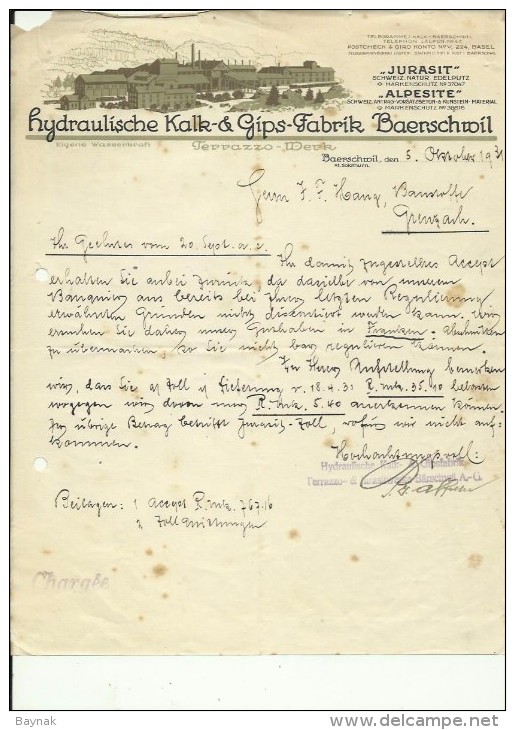 TELEGRAMME: KALK-BAERSCHWIL
TELEPHON LAUFEN No 42
POSTCHECK & GIRO KONTO No V. 224, BASEL
„JURASIT"
SCHWEIZ. NATUR EDELPUTZ
MARKENSCHUTZ No 37047
„ALPESITE"
MARKENSCHUTZ No 38816
Hydraulische Kalk-& Gips-Fabrik Baerschwil
Eigene Wasserkraft Terrazzo-Werk
Baerschwil, den 5. Oktober 1931
Kt. Solothurn.
Herrn J. F. Hang, Baustoffe
Grenzach.
Ihr Geehrtes vom 20. Sept. a. c.
Ihr damit zugestelltes Accept
erhalten Sie anbei zurück, da dasselbe von unseren
Banquiers aus bereits bei Ihrer letzten Regulierung
erwähnten Gründen nicht diskontiert werden kann. Wir
ersuchen Sie daher unser Guthaben in Franken
zu überweisen, so Sie nicht bar regulieren können.
Zu Ihrer Aufstellung bemerken
wir, dass Sie für Zoll für Lieferung v. 18.4.31 R. mk. 35.10 belasten
wogegen wir davon nur R. Mk. 5.40 anerkennen können.
Im übrige Betrag betrifft Jurasit-Zoll, wofür wir nicht auf-
kommen.
Hochachtungsvoll:
Hydraulische Kalk- & Gipsfabrik
Terrazzo- & Bärschwil A.-G.
Beilagen: 1 Accept R.mk. 767.16
2 Zollquittungen
Chargée
Baynak
www.delcampe.net